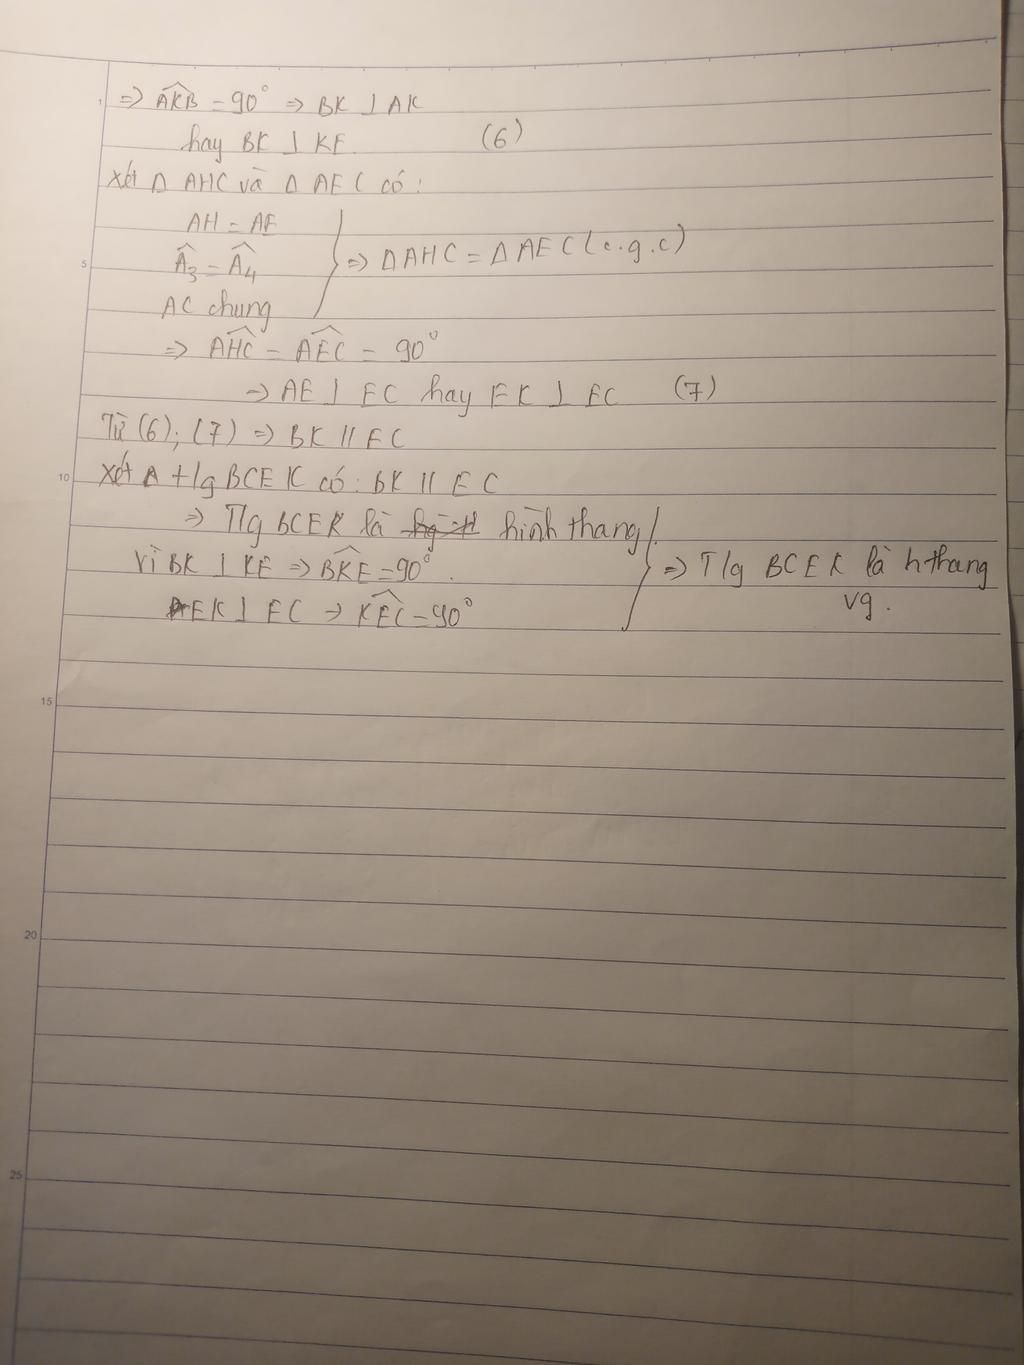 1 => \widehat{AKB} = 90° => BK ⊥ AK
hay BK ⊥ KE (6)
xét Δ AHC và Δ AEC có:
AH = AE
5 Â₃ = Â₄ => ΔAHC = ΔAEC (c.g.c)
AC chung
=> \widehat{AHC} = \widehat{AEC} = 90°
=> AE ⊥ EC hay EK ⊥ EC (7)
Từ (6); (7) => BK // EC
10 xét t/g BCEK có: BK // EC
=> T/g BCEK là hình thang
Vì BK ⊥ KE => \widehat{BKE} = 90°. => T/g BCEK là hthang
EK ⊥ EC → \widehat{KEC} = 90° vg.
15
20
25